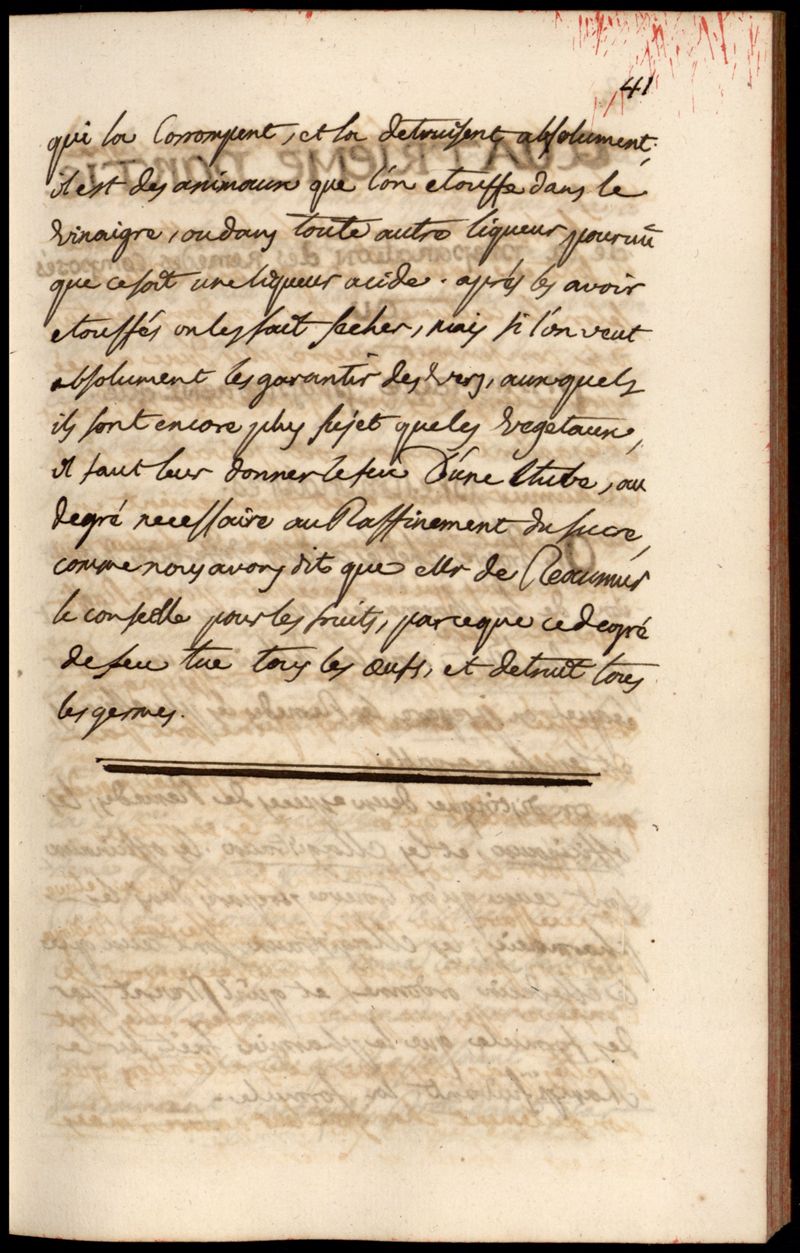 41
qui la Corrompent, et la detruisent absolument;
il est des animaux que l'on etouffe dans le
vinaigre, ou dans toute autre liqueur pourvû
que ce soit une liqueur acide. aprés les avoir
etouffés on les fait secher, mais si l'on veut
absolument les garantir des vers, auxquels
ils sont encore plus sujet que les vegetaux,
il faut leur donner le feu d'une Etube, au
degré necessaire au Raffinement du sucre,
comme nous avons dit que Mr de Reaumur
le conseille pour les fruits, parceque ce degré
de feu tue tous les œufs, et detruit tous
les germes.